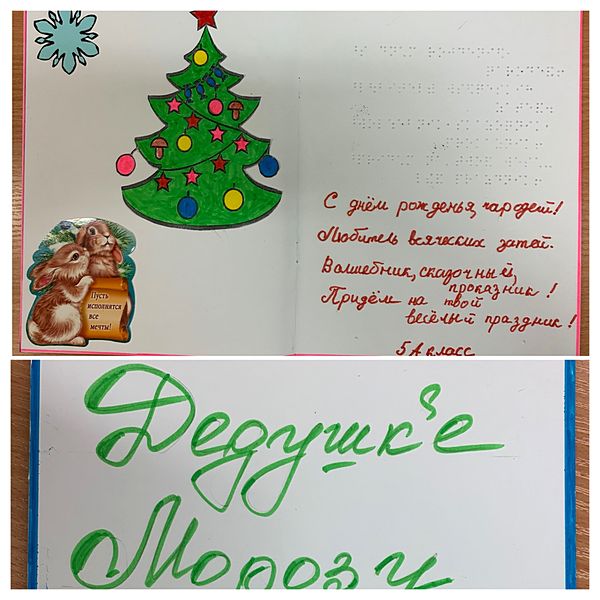 С днём рожденья, чародей!
Любитель всяческих затей.
Волшебник, сказочный,
проказник!
Придём на твой
весёлый праздник!
5 А класс
Пусть
исполнятся
все
мечты!
Дедушке
Морозу